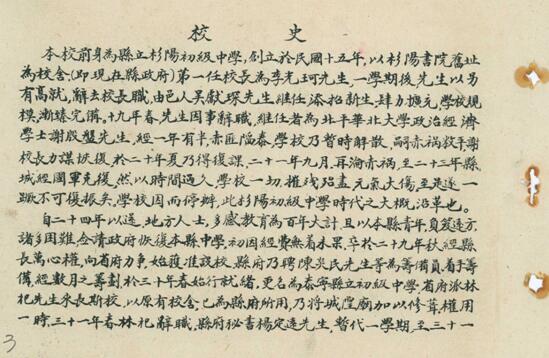 校史
本校前身為縣立杉陽初級中學，創立於民國十五年，以杉陽書院舊址
為校舍（即現在縣政府）第一任校長為李光珂先生，一學期後，先生以另
有高就，辭去校長職，由邑人吳獻琛先生継任添招新生，肆力擴充，學校規
模，漸臻完備，十九年春，先生因事辭職，継任者為北平華北大學政治經濟
學士謝殷盤先生，經一年有半，赤匪陷泰，學校乃暫時解散，嗣赤禍救平謝
校長力謀恢復，於二十年夏乃得復課，二十一年九月，再淪赤禍，至二十三年縣
城經國軍克復，然以時間過久學校一切，摧殘殆盡元氣大傷，至是遂一
蹶不可復振矣，學校因而停辦，此杉陽初級中學時代之大概沿革也。
自二十四年以還，地方人士，多感教育為百年大計，且以本縣青年負笈遠方
諸多困難，僉請政府恢復本縣中學，初因經費無着未果，卒於二十九年秋經縣
長萬心權，向省府力爭，始獲准設校，縣府乃聘陳英民先生等為籌備員，着手籌
備，經數月之籌劃，於三十年春始行就緒，更名為泰寧縣立初級中學，省府派林
祀先生來長斯校，以原有校舍，已為縣府所用，乃將城隍廟加以修葺權用
一時，三十一年春林祀辭職，縣府祕書楊定遠先生，暫代一學期，至三十一
3